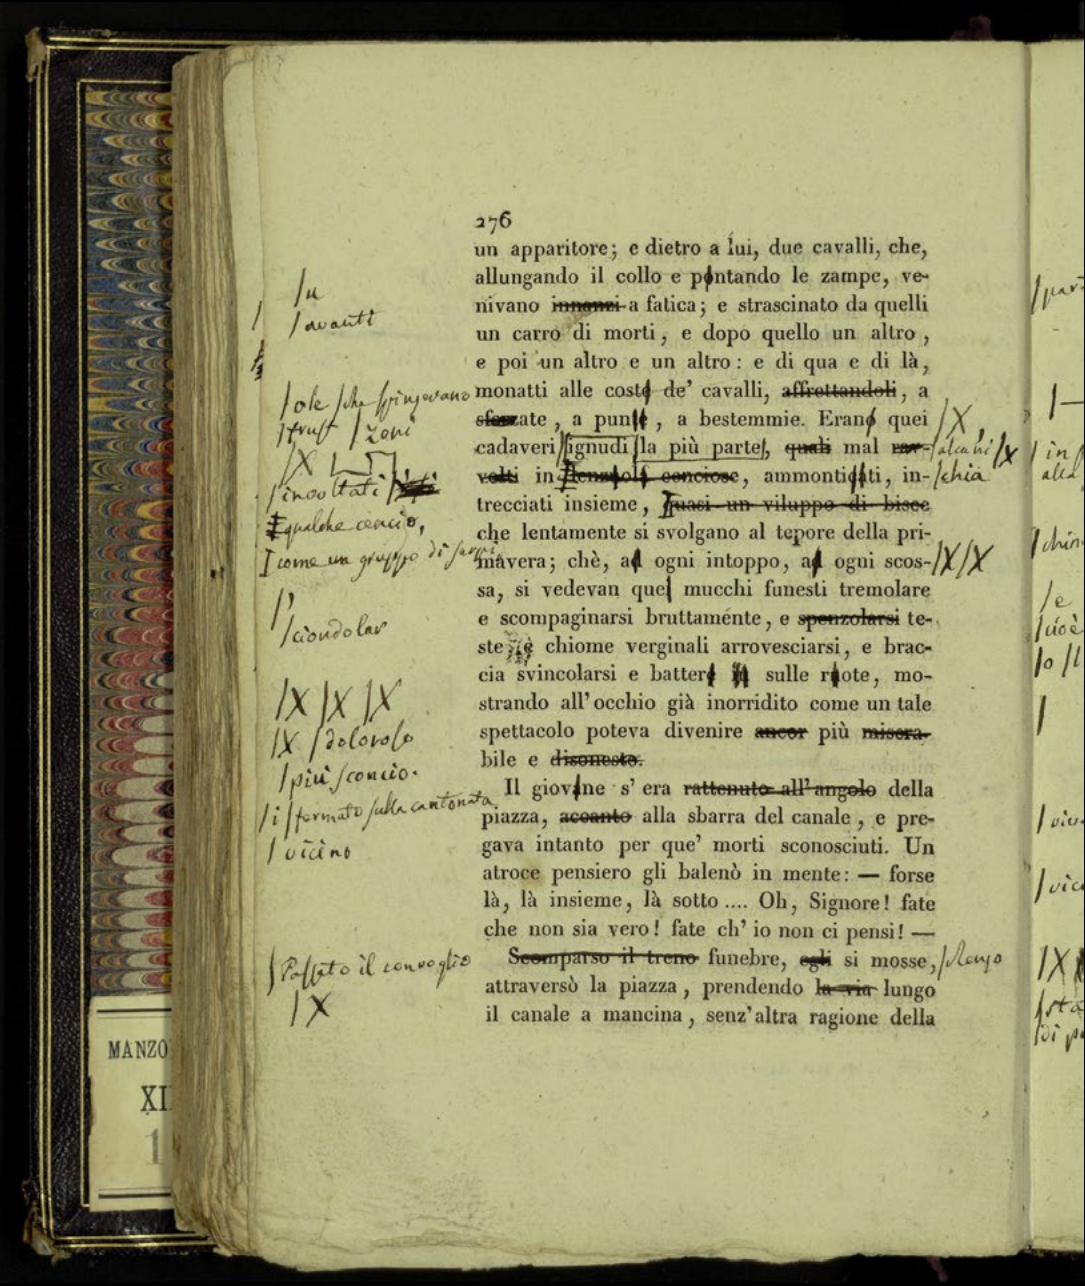 276
un apparitore; e dietro a lui, due cavalli, che,
allungando il collo e puntando le zampe, ve-
nivano innanzi a fatica; e strascinato da quelli
un carro di morti, e dopo quello un altro,
e poi un altro e un altro: e di qua e di là,
monatti alle coste de' cavalli, affrettandoli, a
sferzate, a punte, a bestemmie. Erano quei
cadaveri, ignudi la più parte, quali mal rav-
volti in conciose, ammonticati, in-
trecciati insieme, quasi un viluppo di bisce
che lentamente si svolgano al tepore della pri-
mavera; chè, ad ogni intoppo, ad ogni scos-
sa, si vedevan quei mucchi funesti tremolare
e scompaginarsi bruttamente, e spenzolarsi te-
ste, e chiome verginali arrovesciarsi, e brac-
cia svincolarsi e battere sulle ruote, mo-
strando all'occhio già inorridito come un tale
spettacolo poteva divenire ancor più misera-
bile e disonesto.
Il giovane s'era rattenuto all'angolo della
piazza, accanto alla sbarra del canale, e pre-
gava intanto per que' morti sconosciuti. Un
atroce pensiero gli balenò in mente: — forse
là, là insieme, là sotto.... Oh, Signore! fate
che non sia vero! fate ch'io non ci pensi! —
Scomparso il treno funebre, egli si mosse,
attraversò la piazza, prendendo la via lungo
il canale a mancina, senz'altra ragione della
/u
/avanti
/ole /che spingevano
/frust /zoni
/X
/involtati
qualche cencio,
come un gruppo di serpi
/ciondolar
/X /X /X
/X /doloroso
/più sconcio.
/i /fermato sulla cantonata
/vicino
/Passato il convoglio
/X
/X
/alcuni /X
/chia
/X /X
/Renzo
MANZO
XI
1